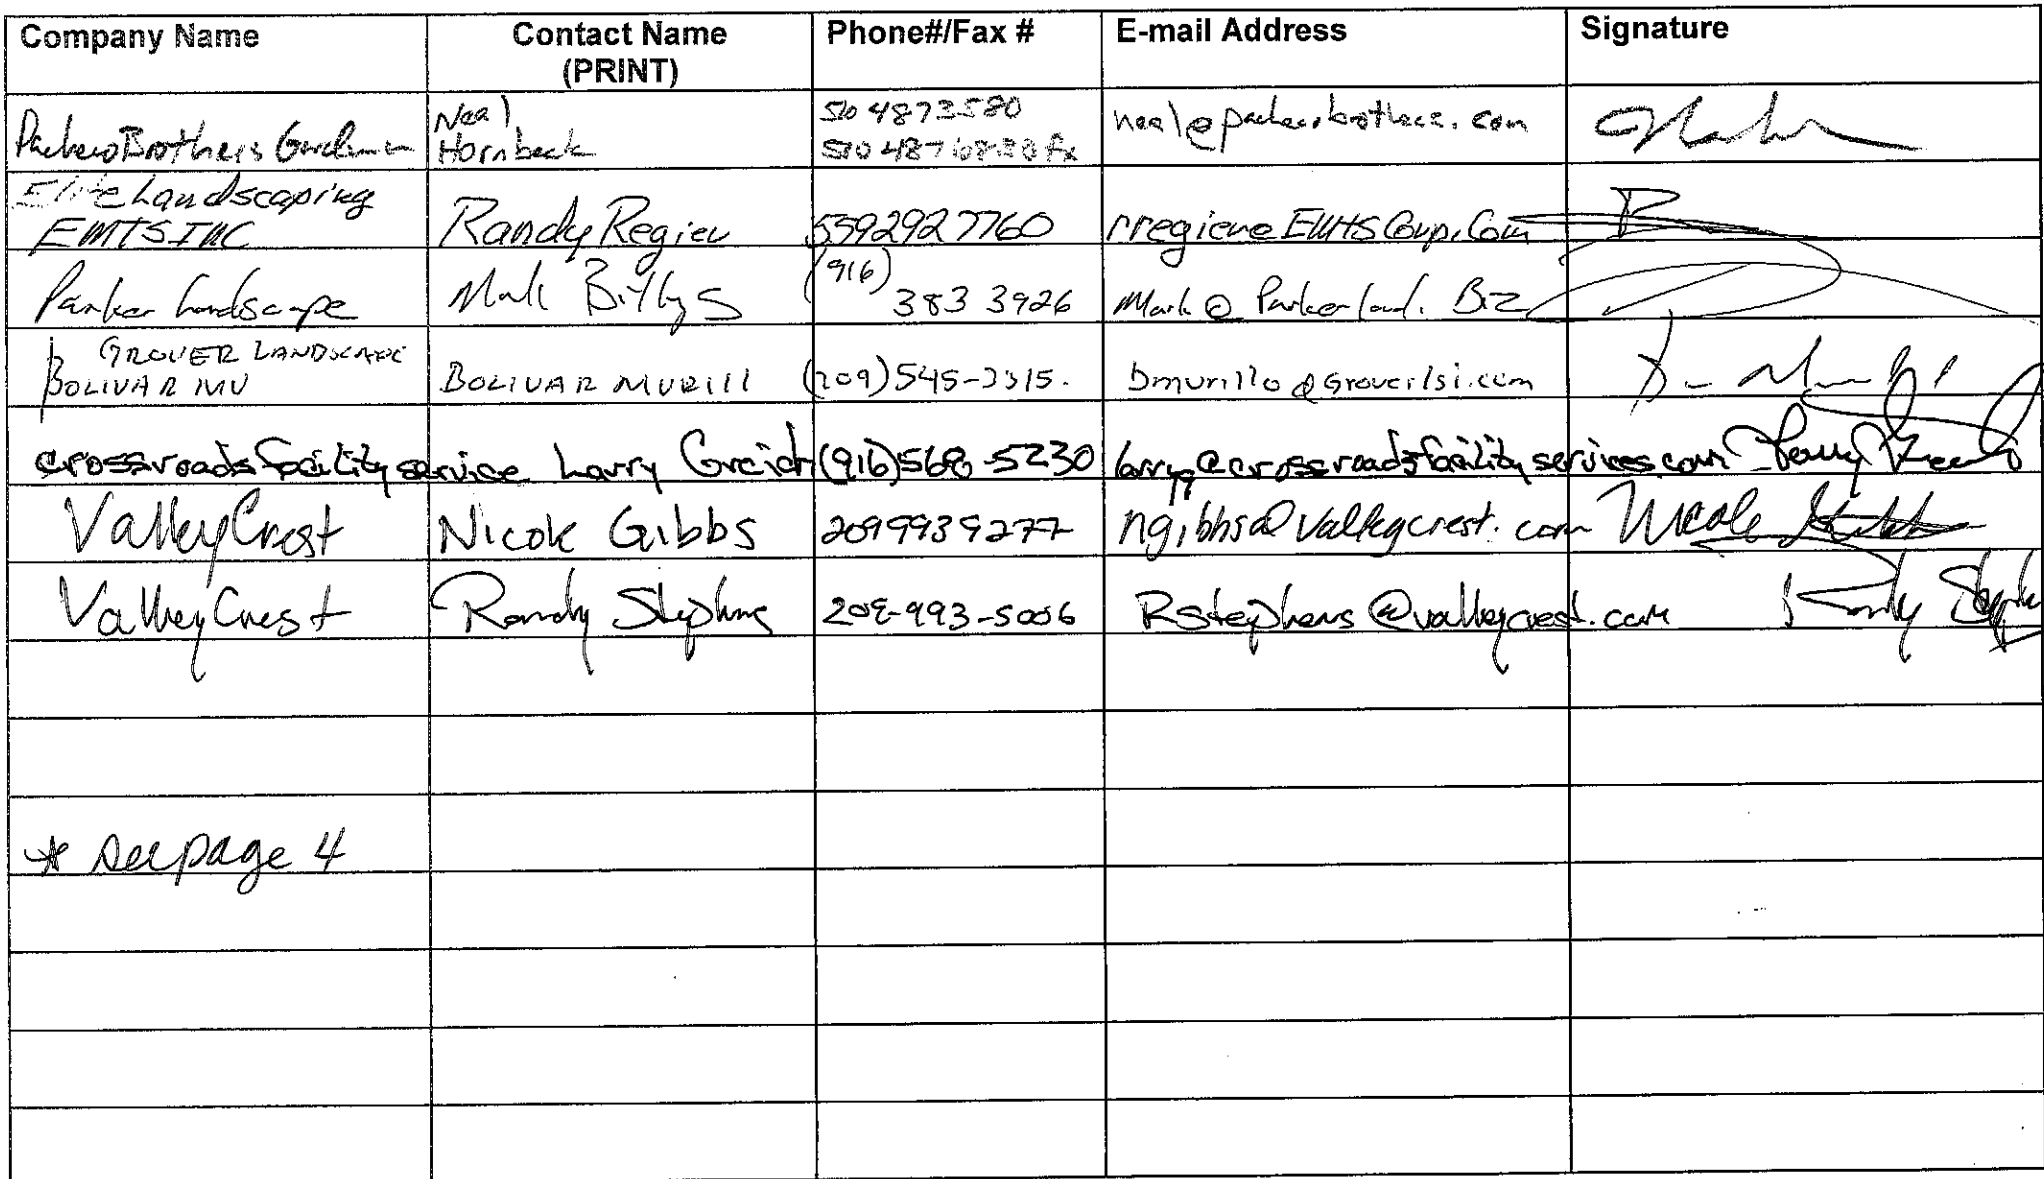 Company Name Contact Name Phone#/Fax # E-mail Address Signature
(PRINT)
Neal 510 4873580
Pacheco Brothers Hornbeck 510 487 fx neal@pachecobrothers.com
Elite Landscaping
EMTS INC Randy Regier 5592927760
Parker Landscape Mark (916) 383 3926 Mark @ Parkerland. Biz
GROVER LANDSCAPE
BOLIVAR MU BOLIVAR MURILL (209) 545- bmurillo@groverlsi.com
crossroads facility service Larry (916) 568-5230 larryg@crossroadsfacilityservices.com Larry
ValleyCrest Nicole Gibbs 2099939277 ngibbs@valleycrest.com Nicole Gibbs
ValleyCrest Randy Stephens 209-993-5006 Rstephens@valleycrest.com Randy Stephens
* see page 4